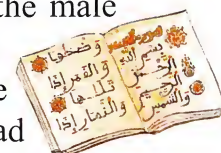 the male
e
ad
بسم الله
الرحمن
الرحيم
والشمس
وضحها
والقمر إذا
تلها
والنهار إذا